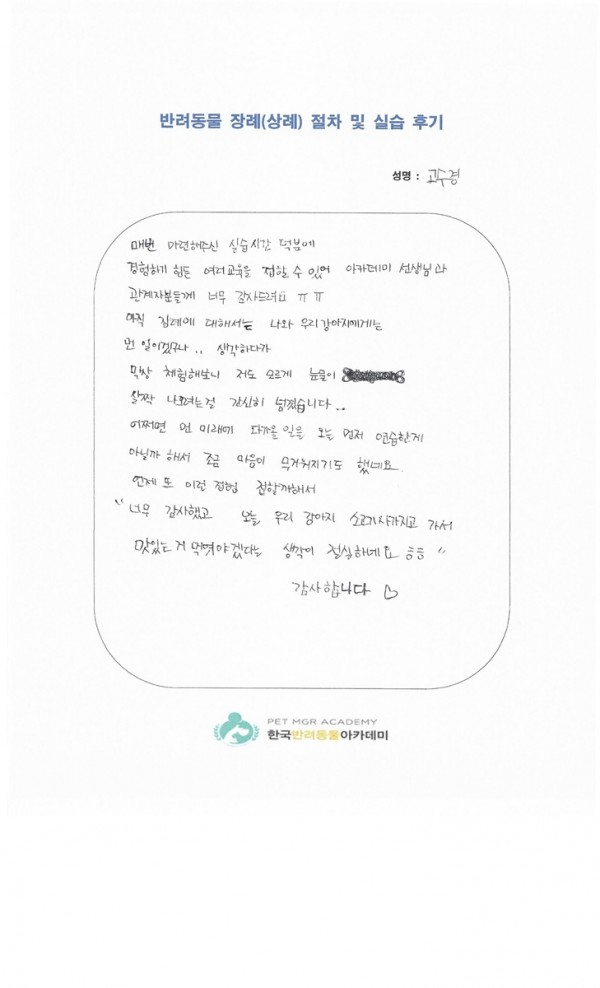 반려동물 장례(상례) 절차 및 실습 후기
성명 : 고수경
매번 마련해주신 실습시간 덕분에
경험하기 힘든 여러교육을 접할 수 있어 아카데미 선생님과
관계자분들께 너무 감사드려요 ㅠㅠ
아직 장례에 대해서는 나와 우리강아지에게는
먼 일이겠구나.. 생각하다가
막상 체험해보니 저도 모르게 눈물이
살짝 나오려는걸 간신히 넘겼습니다..
어쩌면 먼 미래에 다가올 일을 오늘 먼저 연습한게
아닐까 해서 조금 마음이 무거워지기도 했네요.
언제 또 이런 경험 접할까해서
"너무 감사했고 오늘 우리 강아지 소고기사가지고 가서
맛있는거 먹여야겠다는 생각이 절실하네요 ㅎㅎ"
감사합니다 ♡
PET MGR ACADEMY
한국반려동물아카데미